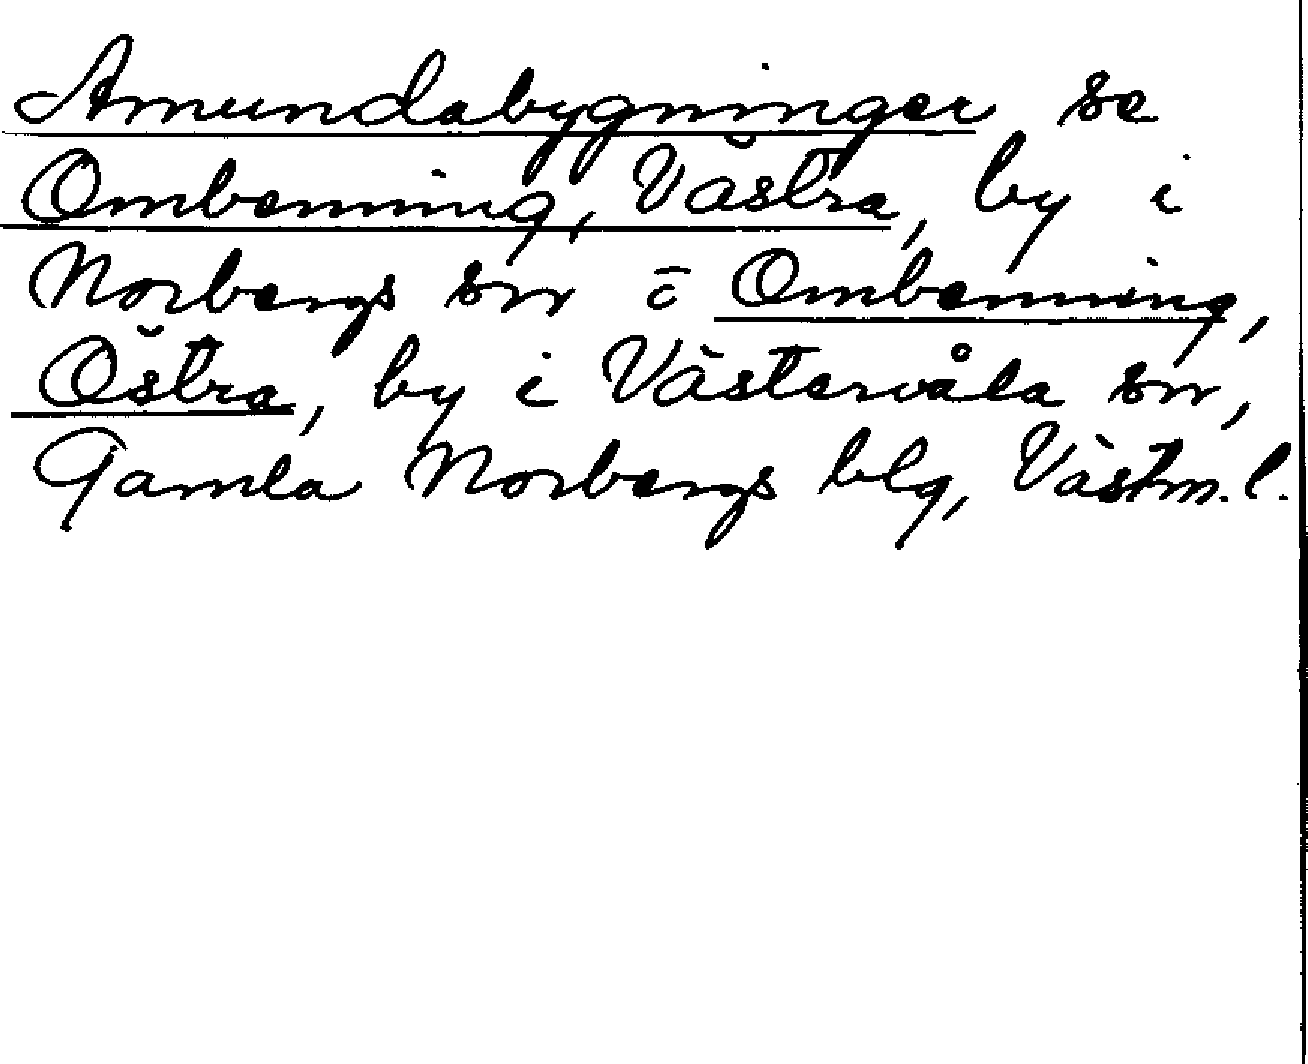 Amundabygninger se
Ombenning, Västra, by i
Norbergs sn o Ombenning,
Östra, by i Västervåla sn,
Gamla Norbergs blg, Västm. l.